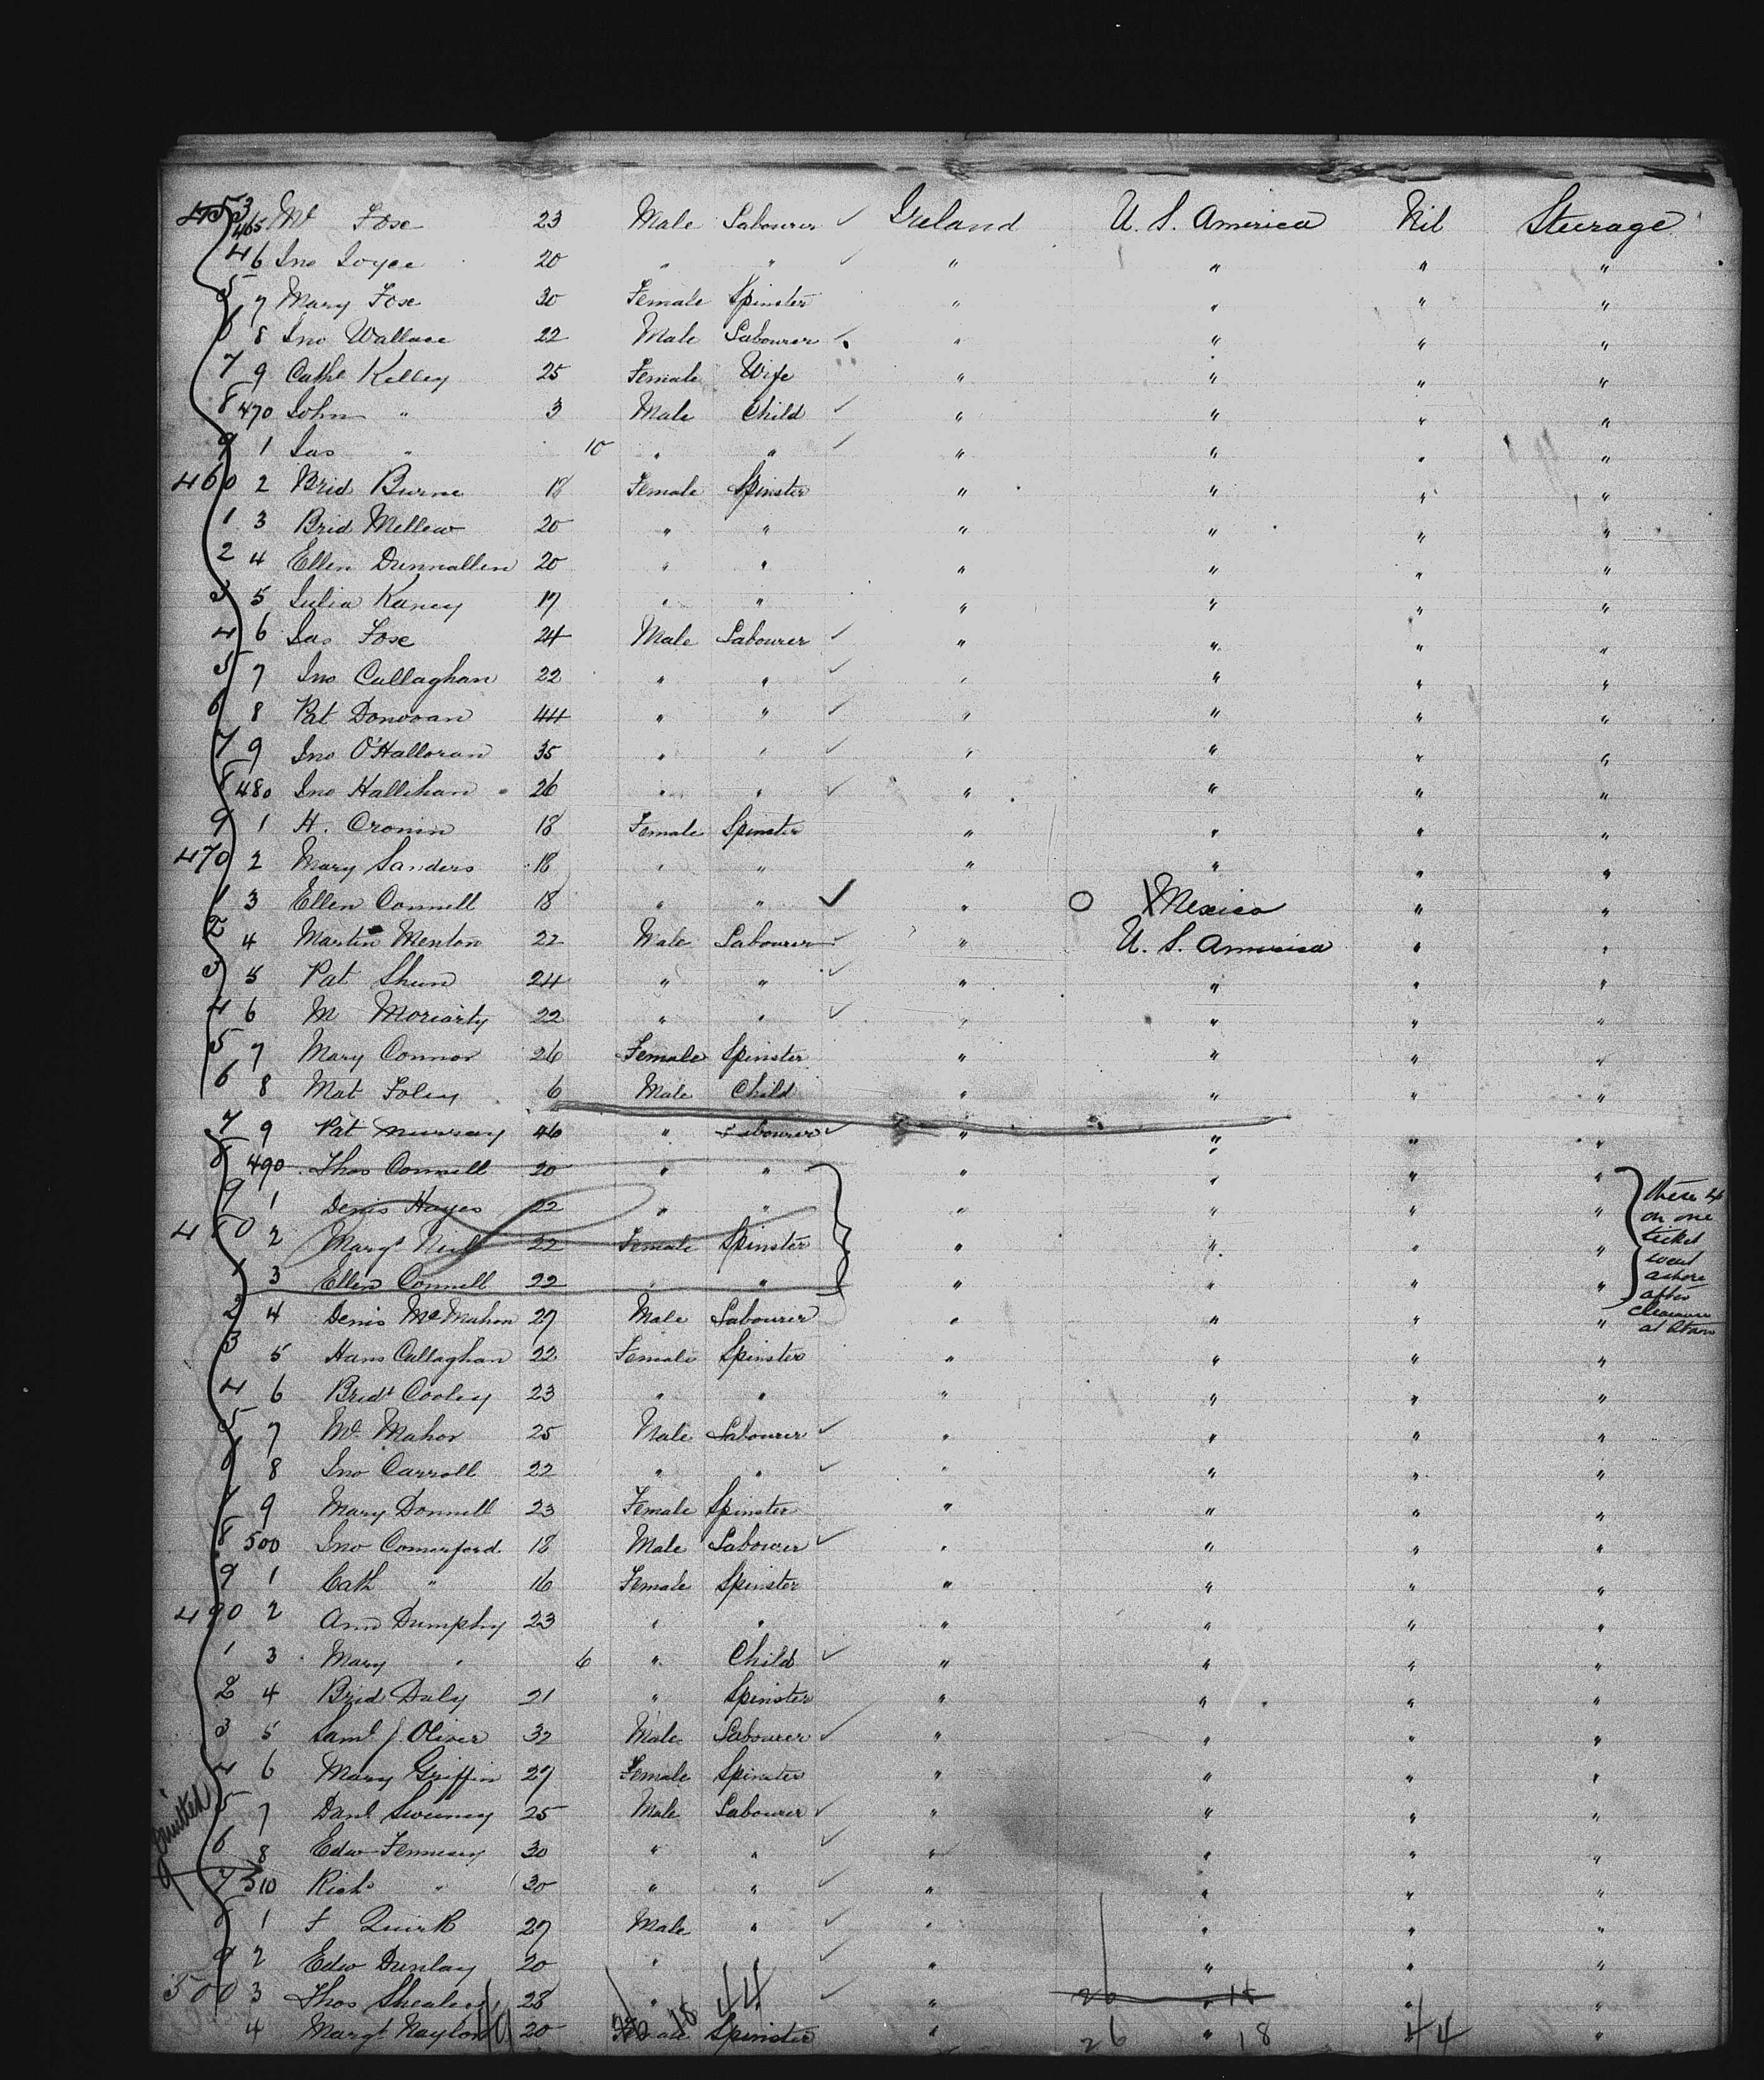 453 465 Mc Fose 23 Male Labourer ✓ Ireland U. S. America Nil Steerage
4 6 Jno Joyce 20 " " ✓ " " " "
5 7 Mary Fose 30 Female Spinster " " " "
6 8 Jno Wallace 22 Male Labourer ✓ " " " "
7 9 Cathe Kelley 25 Female Wife " " " "
8 470 John " 3 Male Child ✓ " " " "
9 1 Jas " 10 " " ✓ " " " "
460 2 Brid Burne 18 Female Spinster " " " "
1 3 Brid Mellew 20 " " " " " "
2 4 Ellen Dunnallen 20 " " " " " "
3 5 Julia Kaney 17 " " " " " "
4 6 Jas Fose 24 Male Labourer ✓ " " " "
5 7 Jno Callaghan 22 " " ✓ " " " "
6 8 Pat Donovan 44 " " ✓ " " " "
7 9 Jno O'Halloran 35 " " ✓ " " " "
8 480 Jno Hallihan 26 " " ✓ " " " "
9 1 H. Cronin 18 Female Spinster " " " "
470 2 Mary Sanders 18 " " " " " "
1 3 Ellen Connell 18 " " ✓ " O X Mexico " "
2 4 Martin Menton 22 Male Labourer ✓ " U. S. America " "
3 5 Pat Shun 24 " " ✓ " " " "
4 6 M Moriarty 22 " " ✓ " " " "
5 7 Mary Connor 26 Female Spinster " " " "
6 8 Mat Foley 6 Male Child " " " "
7 9 Pat Murray 46 " Labourer ✓ " " " "
8 490 Thos Connell 20 " " " " " "
9 1 Denis Hayes 22 " " " " " "
480 2 Margt 22 Female Spinster " " " "
1 3 Ellen Connell 22 " " " " " "
these 4
on one
ticket
went
ashore
after
clearance
at
2 4 Denis McMahon 27 Male Labourer " " " "
3 5 Hans Callaghan 22 Female Spinster " " " "
4 6 Bridt Cooley 23 " " " " " "
5 7 Mc Mahor 25 Male Labourer ✓ " " " "
6 8 Jno Carroll 22 " " ✓ " " " "
7 9 Mary Donnell 23 Female Spinster " " " "
8 500 Jno Comerford 18 Male Labourer ✓ " " " "
9 1 Cath " 16 Female Spinster " " " "
490 2 Ann Dumphy 23 " " " " " "
1 3 Mary " 6 " Child ✓ " " " "
2 4 Brid Daly 21 " Spinster " " " "
3 5 Saml J. Oliver 32 Male Labourer ✓ " " " "
4 6 Mary Griffin 27 Female Spinster " " " "
5 7 Danl Sweeney 25 Male Labourer ✓ " " " "
omitted
6 8 Edw Fennessy 30 " " ✓ " " " "
9 7 510 Richd " 30 " " ✓ " " " "
8 1 F Quirk 27 Male " ✓ " " " "
9 2 Edw Dunlay 20 " " ✓ " " " "
500 3 Thos 28 " " ✓ " " " "
4 Margt Naylon 20 Female Spinster " " " "
49 26 18 44 26 18 44